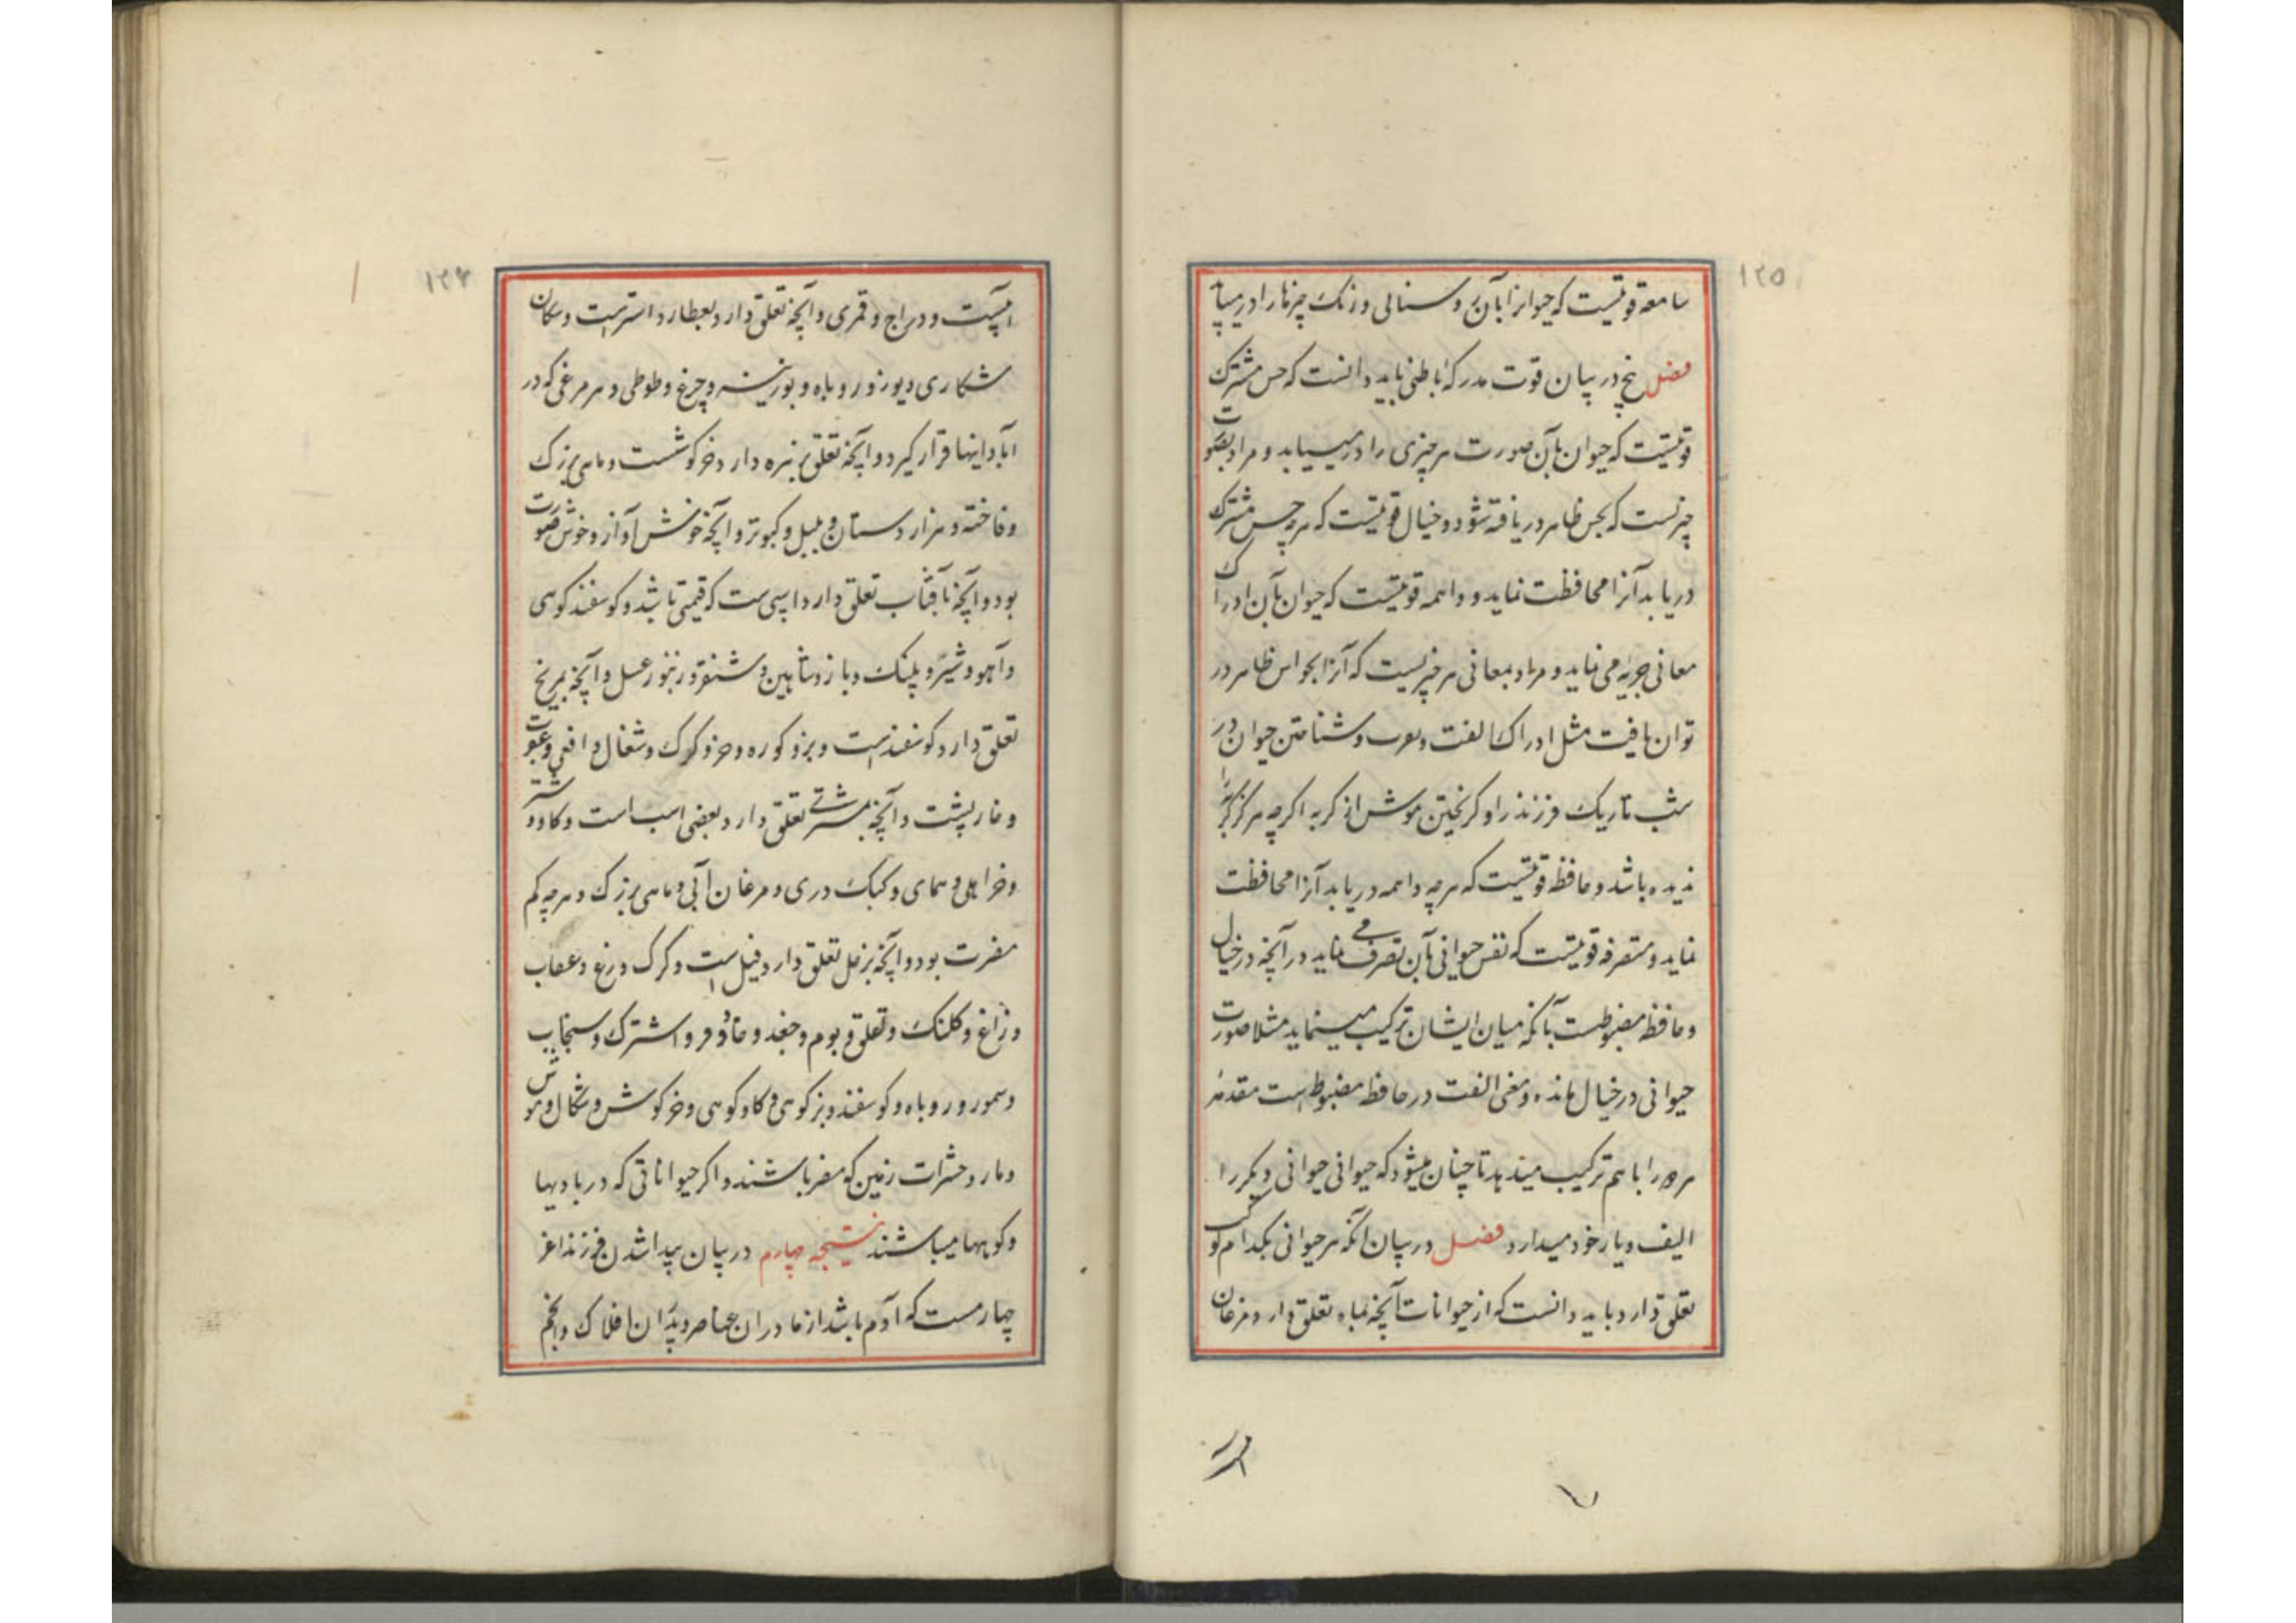 ١٢٥
سامعه قوتیست که حیوانرا بآن روسنائی ورنک چیزهارا درمییابد
فصل پنج در بیان قوت مدرکه باطنی باید دانست که حس مشترک
قوتیست که حیوان بآن صورت هر چیزی را درمییابد و مراد بصورت
چیزیست که بحس ظاهر دریافته شود و خیال قوتیست که هرچه حس مشترک
دریابد آنرا محافظت نماید و واهمه قوتیست که حیوان بآن ادراک
معانی جزیه می نماید و مراد بمعانی هر چیزیست که آنرا بحواس ظاهر در
توان یافت مثل ادراک الفت و شناختن حیوان در
شب تاریک فرزند را و کریختن موش از کربه اکرچه هرکز کربه را
ندیده باشد و حافظه قوتیست که هرچه واهمه دریابد آنرا محافظت
نماید و متصرفه قوتیست که نفس حیوانی بآن تصرف می نماید در آنچه در خیال
و حافظه مضبوطست بآنکه میان ایشان ترکیب مینماید مثلا صورت
حیوانی در خیال مانده و معنی الفت در حافظه مضبوط است
را با هم ترکیب میدهد تا چنان میشود که حیوانی حیوانی دیکر را
الیف و یار خود میدارد فصل در بیان آنکه هر حیوانی بکدام کوکب
تعلق دارد باید دانست که از حیوانات آنچه بماه تعلق دارد مرغان
١٢٦
و دراج و قمری و آنچه تعلق دارد بعطارد استرست و سکان
شکاری و یوز و روباه و بوزینه و چرغ و طوطی و هر مرغی که در
آبادانیها قرار کیرد و آنچه تعلق بزهره دارد خرکوشست و ماهی بزرک
و فاخته و هزاردستان و بلبل و کبوتر و آنچه خوش آواز و خوش صورت
بود و آنچه بآفتاب تعلق دارد اسپی ست که قیمتی باشد و کوسفند کوهی
و آهو و شیر و پلنک و باز و شاهین و شنقر و زنبور عسل و آنچه بمریخ
تعلق دارد کوسفندست و بز و کوره خر و کرک و شغال و افعی و عنکبوت
و خارپشت و آنچه بمشتری تعلق دارد بعضی اسب است و کاو و شتر
و خر اهلی و همای و کبک دری و مرغان آبی و ماهی بزرک و هرچه کم
مضرت بود و آنچه بزحل تعلق دارد فیل است و کرک و زغ و عقاب
و زاغ و کلنک و بوم و جغد و سنجاب
و سمور و روباه و کوسفند و بزکوهی و کاو کوهی و خرکوش و شکال و موش
و مار و حشرات زمین که مضر باشند و اکر حیواناتی که در بادیها
و کوهها میباشند نتیجه چهارم در بیان پیدا شدن فرزند اعز
چهارمست که آدم باشد از مادران عناصر و پدران افلاک و انجم